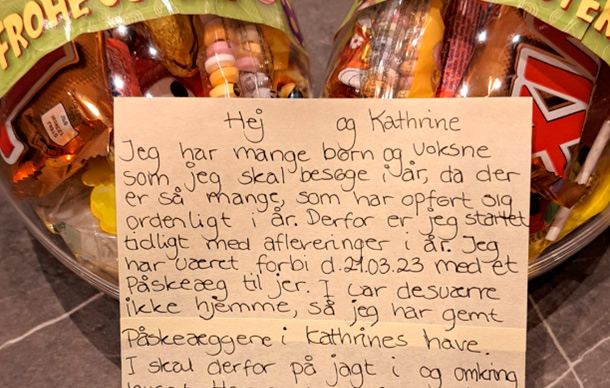 FROHE OSTE
Hej og Kathrine
Jeg har mange børn og voksne
som jeg skal besøge i år, da der
er så mange, som har opført sig
ordenligt i år. Derfor er jeg startet
tidligt med afleveringer i år. Jeg
har været forbi d. 21.03.23 med et
Påskeæg til jer. I var desværre
ikke hjemme, så jeg har gemt
Påskeæggene i Kathrines have.
I skal derfor på jagt i og omkring